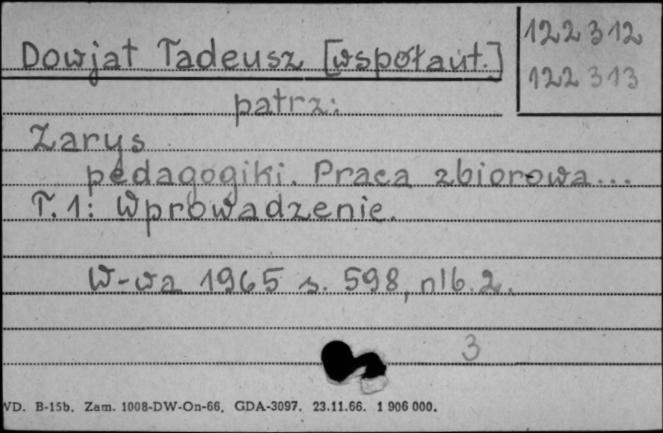 Dowjat Tadeusz [wspołaut.]
122 312
122 313
patrz:
Zarys
pedagogiki. Praca zbiorowa...
T. 1: Wprowadzenie.
W-wa 1965 s. 598, nlb. 2.
3
VD. B-15b. Zam. 1008-DW-On-66. GDA-3097. 23.11.66. 1 906 000.